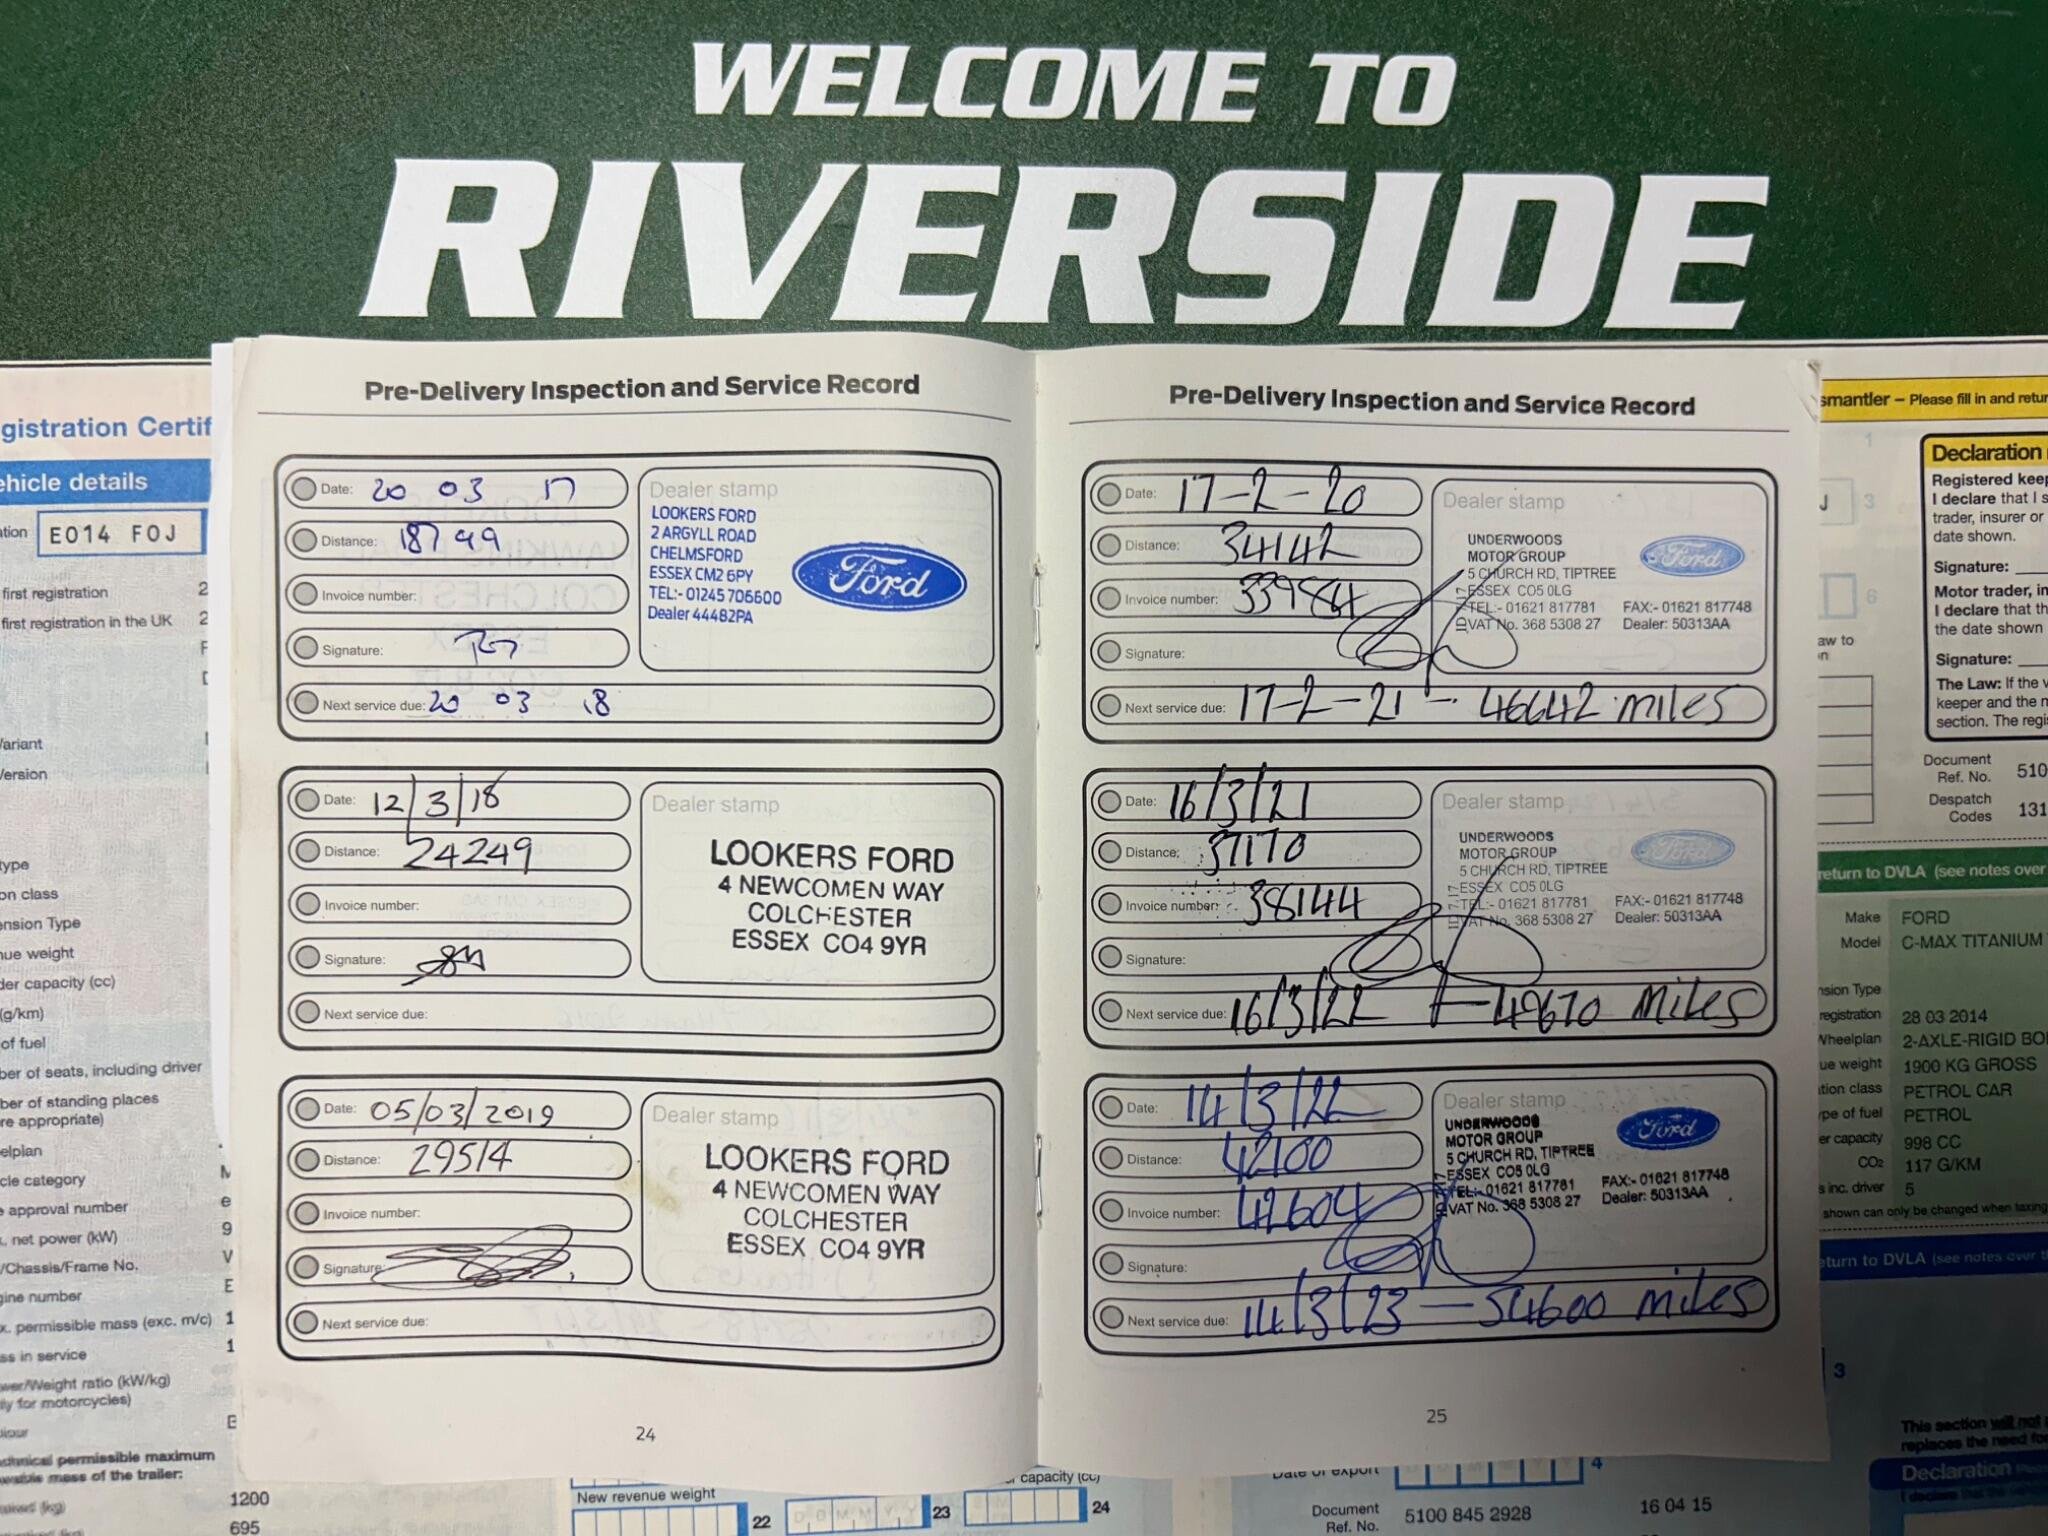 WELCOME TO
RIVERSIDE
Pre-Delivery Inspection and Service Record
Date: 20 03 17
Distance: 18799
Invoice number:
Signature:
Next service due: 20 03 18
Dealer stamp
LOOKERS FORD
2 ARGYLL ROAD
CHELMSFORD
ESSEX CM2 6PY
TEL:- 01245 706600
Dealer 44482PA
Ford
Date: 12/3/18
Distance: 24249
Invoice number:
Signature:
Next service due:
Dealer stamp
LOOKERS FORD
4 NEWCOMEN WAY
COLCHESTER
ESSEX CO4 9YR
Date: 05/03/2019
Distance: 29514
Invoice number:
Signature:
Next service due:
Dealer stamp
LOOKERS FORD
4 NEWCOMEN WAY
COLCHESTER
ESSEX CO4 9YR
24
Pre-Delivery Inspection and Service Record
Date: 17-2-20
Distance: 34142
Invoice number: 339884
Signature:
Next service due: 17-2-21 - 46642 miles
Dealer stamp
UNDERWOODS
MOTOR GROUP
5 CHURCH RD, TIPTREE
ESSEX CO5 0LG
TEL:- 01621 817781 FAX:- 01621 817748
VAT No. 368 5308 27 Dealer: 50313AA
Ford
Date: 16/3/21
Distance: 37170
Invoice number: 38144
Signature:
Next service due: 16/3/22 - 49670 miles
Dealer stamp
UNDERWOODS
MOTOR GROUP
5 CHURCH RD, TIPTREE
ESSEX CO5 0LG
TEL:- 01621 817781 FAX:- 01621 817748
VAT No. 368 5308 27 Dealer: 50313AA
Ford
Date: 14/3/22
Distance: 42100
Invoice number: 42604
Signature:
Next service due: 14/3/23 - 54600 miles
Dealer stamp
UNDERWOODS
MOTOR GROUP
5 CHURCH RD, TIPTREE
ESSEX CO5 0LG
TEL:- 01621 817781 FAX:- 01621 817748
VAT No. 368 5308 27 Dealer: 50313AA
Ford
25
gistration Certif
ehicle details
EO14 FOJ
first registration
first registration in the UK
ariant
ersion
type
on class
ension Type
nue weight
der capacity (cc)
(g/km)
of fuel
ber of seats, including driver
ber of standing places
re appropriate)
elplan
cle category
approval number
. net power (kW)
/Chassis/Frame No.
gine number
x. permissible mass (exc. m/c)
ss in service
wer/Weight ratio (kW/kg)
ly for motorcycles)
our
echnical permissible maximum
wable mass of the trailer:
1200
695
New revenue weight
22
23
capacity (cc)
24
Date of export
4
Document
Ref. No.
5100 845 2928
16 04 15
smantler – Please fill in and retur
Declaration
Registered keep
I declare that I s
trader, insurer or
date shown.
Signature:
Motor trader, in
I declare that th
the date shown
Signature:
The Law: If the v
keeper and the n
section. The regi
Document
Ref. No. 510
Despatch
Codes 131
return to DVLA (see notes over
Make FORD
Model C-MAX TITANIUM
nsion Type
registration 28 03 2014
Wheelplan 2-AXLE-RIGID BO
ue weight 1900 KG GROSS
tion class PETROL CAR
ype of fuel PETROL
er capacity 998 CC
CO2 117 G/KM
s inc. driver 5
shown can only be changed when taxing
eturn to DVLA (see notes over th
3
This section will not
replaces the need fo
Declaration